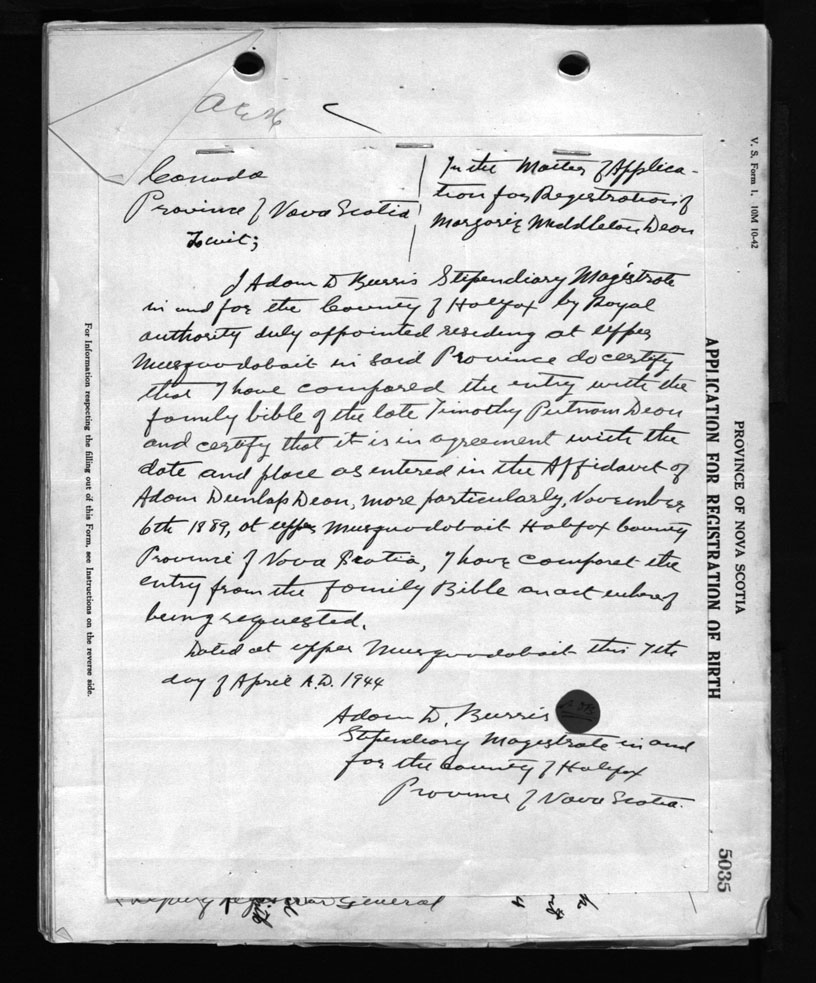 Canada
Province of Nova Scotia
To wit;
In the Matter of Applica-
tion for Registration of
Margorie Middleton Dean
I Adam D Burris Stipendiary Magistrate
in and for the County of Halifax by Royal
authority duly appointed residing at Upper
Musquodoboit in said Province do certify
that I have compared the entry with the
family bible of the late Timothy Putnam Dean
and certify that it is in agreement with the
date and place as entered in the Affidavit of
Adam Dunlap Dean, more particularly, November
6th 1889, at upper Musquodoboit Halifax County
Province of Nova Scotia, I have comparet the
entry from the family Bible
being requested.
Dated at upper Musquodoboit this 7th
day of April A.D. 1944
Adam D. Burris
Stipendiary Magistrate in and
for the County of Halifax
Province of Nova Scotia.
Deputy Registrar General
For Information respecting the filling out of this Form, see Instructions on the reverse side.
V. S. Form 1. 10M 10-42
PROVINCE OF NOVA SCOTIA
APPLICATION FOR REGISTRATION OF BIRTH
5035